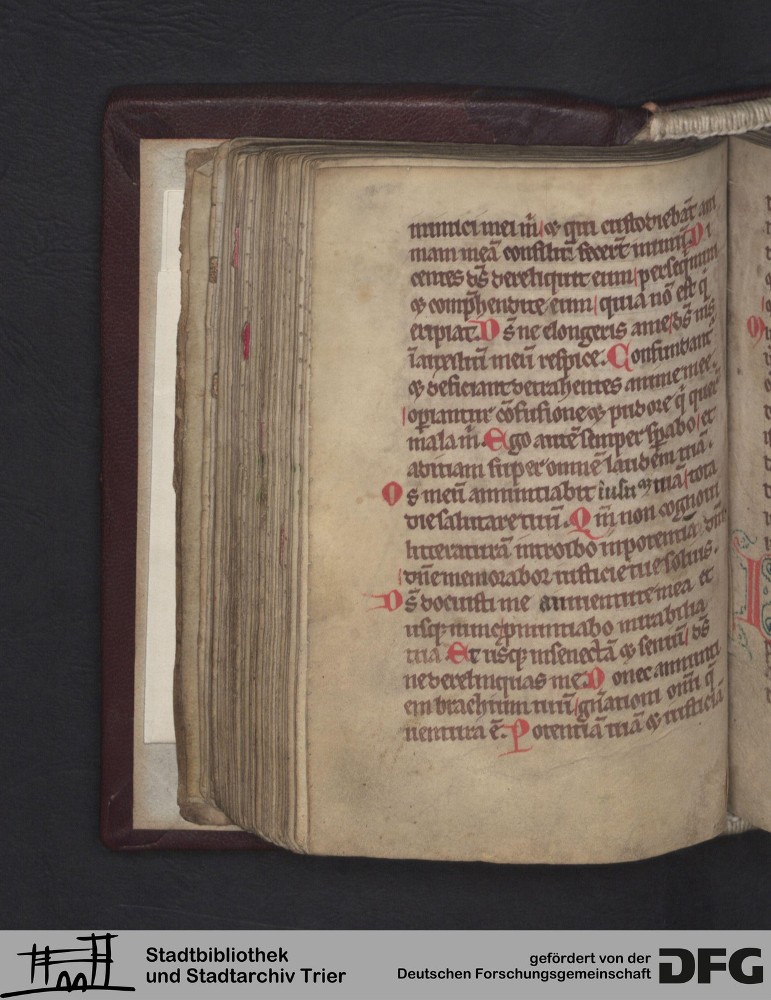 inimici mei m̄ ⁊ qui custodiebāt ani
mam meā consiliū fecerūt in unū Di
centes ds̄ dereliquit eum persequimī
⁊ comp̄hendite eum quia nō est q̄
eripiat. Ds̄ ne elongeris a me ds̄ ms̄
ī auxiliū meū respice. Confundant᷑
⁊ deficiant detrahentes anime mee.
operiantur cōfusione ⁊ pudore q̄ querūt
mala m̄. Ego autē semper sp̄abo et
adiciam super omnē laudem tuā.
Os meū annuntiabit iusticiā tuā tota
die salutare tuū. Qm̄ non cognoui
litteraturā introibo in potentiā dn̄i
dn̄e memorabor iusticie tue solius.
Ds̄ docuisti me a iuuentute mea et
usq; nunc p̄nuntiabo mirabilia
tua Et usq; in senectā ⁊ seniū ds̄
ne derelinquas me Donec annunti
em brachium tuū gn̄ationi om̄i q̄
uentura ē. Potentiā tuā ⁊ iusticiā
Stadtbibliothek
und Stadtarchiv Trier
gefördert von der
Deutschen Forschungsgemeinschaft
DFG